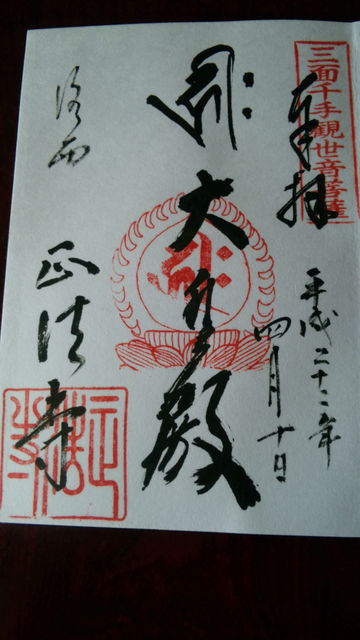 三面千手観世音菩薩
奉拝
平成二十二年
四月十日
大悲殿
洛西
正法寺
正法寺